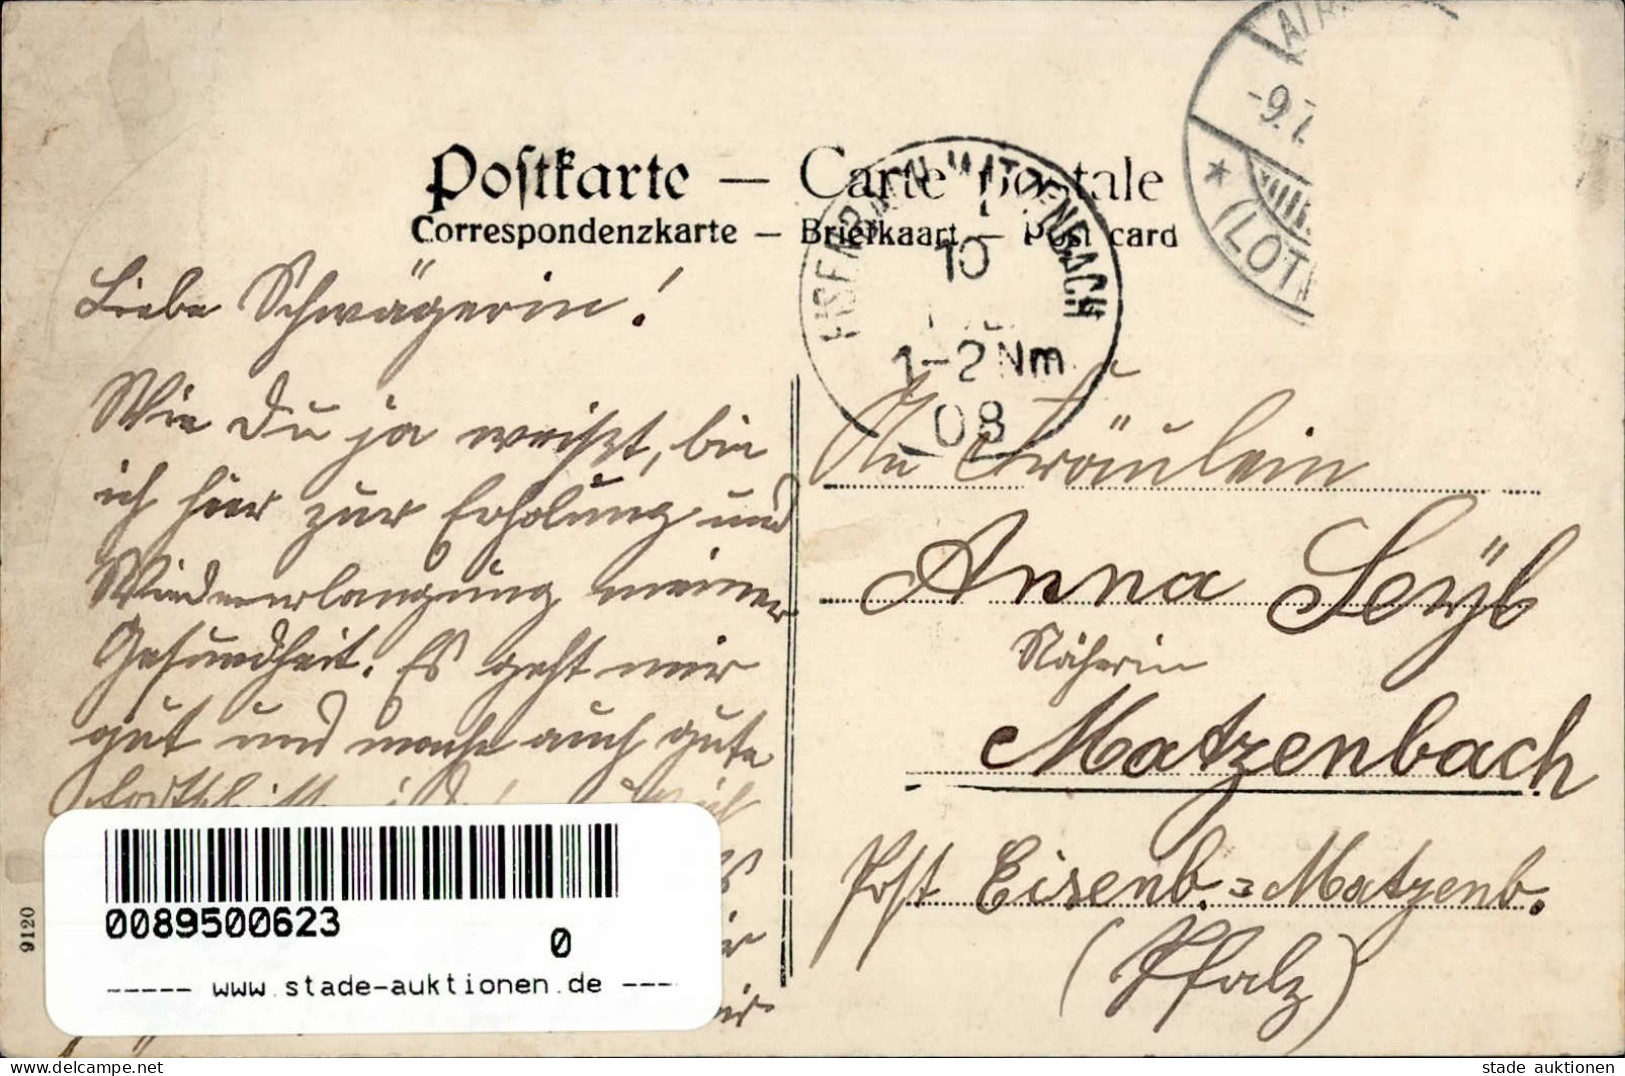 Postkarte — Carte postale
Correspondenzkarte — Briefkaart — Post card
EISENBACH MATZENBACH
10
1-2 Nm.
08
-9.7
(LOTH
Liebe Schwägerin!
Wie Du ja weißt, bin
ich hier zur Erholung und
Wiedererlangung meiner
Gesundheit. Es geht mir
gut und mache auch gute
An Fräulein
Anna Seÿb
Näherin
Matzenbach
Post Eisenb.=Matzenb.
(Pfalz)
9120
0089500623
0
----- www.stade-auktionen.de ---
stade auktionen